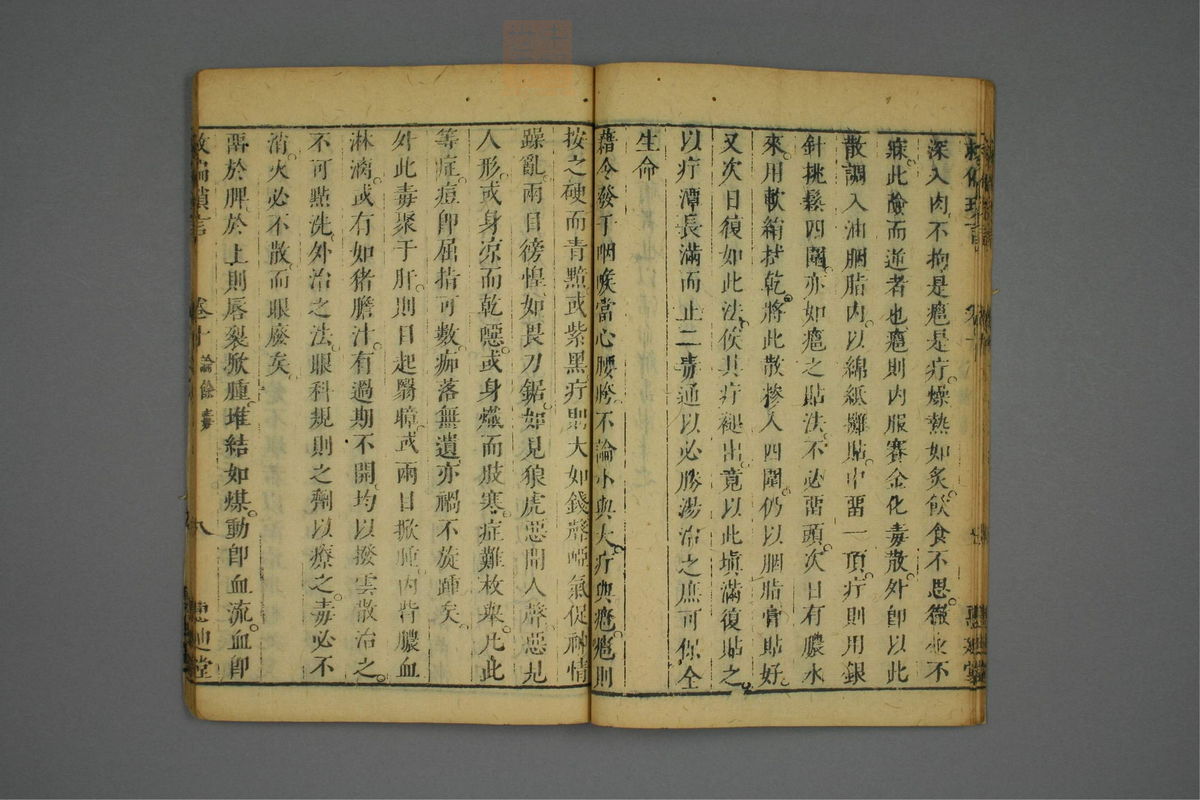 深入肉不拘是瘡是疔燥熱如炙飲食不思微並不
寐此險而逆者也瘡則內服賽金化毒散外卽以此
散調入油胭脂內以綿紙攤貼中畱一頂疔則用銀
針挑鬆四圍亦如瘡之貼法不必畱頭次日有膿水
來用軟絹拭乾將此散摻入四圍仍以胭脂膏貼好
又次日復如此法俟其疔褪出竟以此塡滿復貼之
以疔潭長滿而止二毒通以必勝湯治之庶可保全
生命
藉令發于咽喉當心腰胯不論小與大疔與瘡瘡則
按之硬而青黯或紫黑疔則大如錢聲啞氣促神情
躁亂兩目徬惶如畏刀鋸如見狼虎惡聞人聲惡見
人形或身凉而乾噁或身熾而肢寒症難枚舉凡此
等症痘卽屈指可數痂落無遺亦禍不旋踵矣
外此毒聚于肝則目起翳暲或兩目掀腫內背膿血
淋漓或有如猪膽汁有過期不開均以撥雲散治之
不可點洗外治之法眼科規則之劑以療之毒必不
消火必不散而眼廢矣
畱於脾於上則唇裂掀腫堆結如煤動卽血流血卽
卷十 論餘毒 八